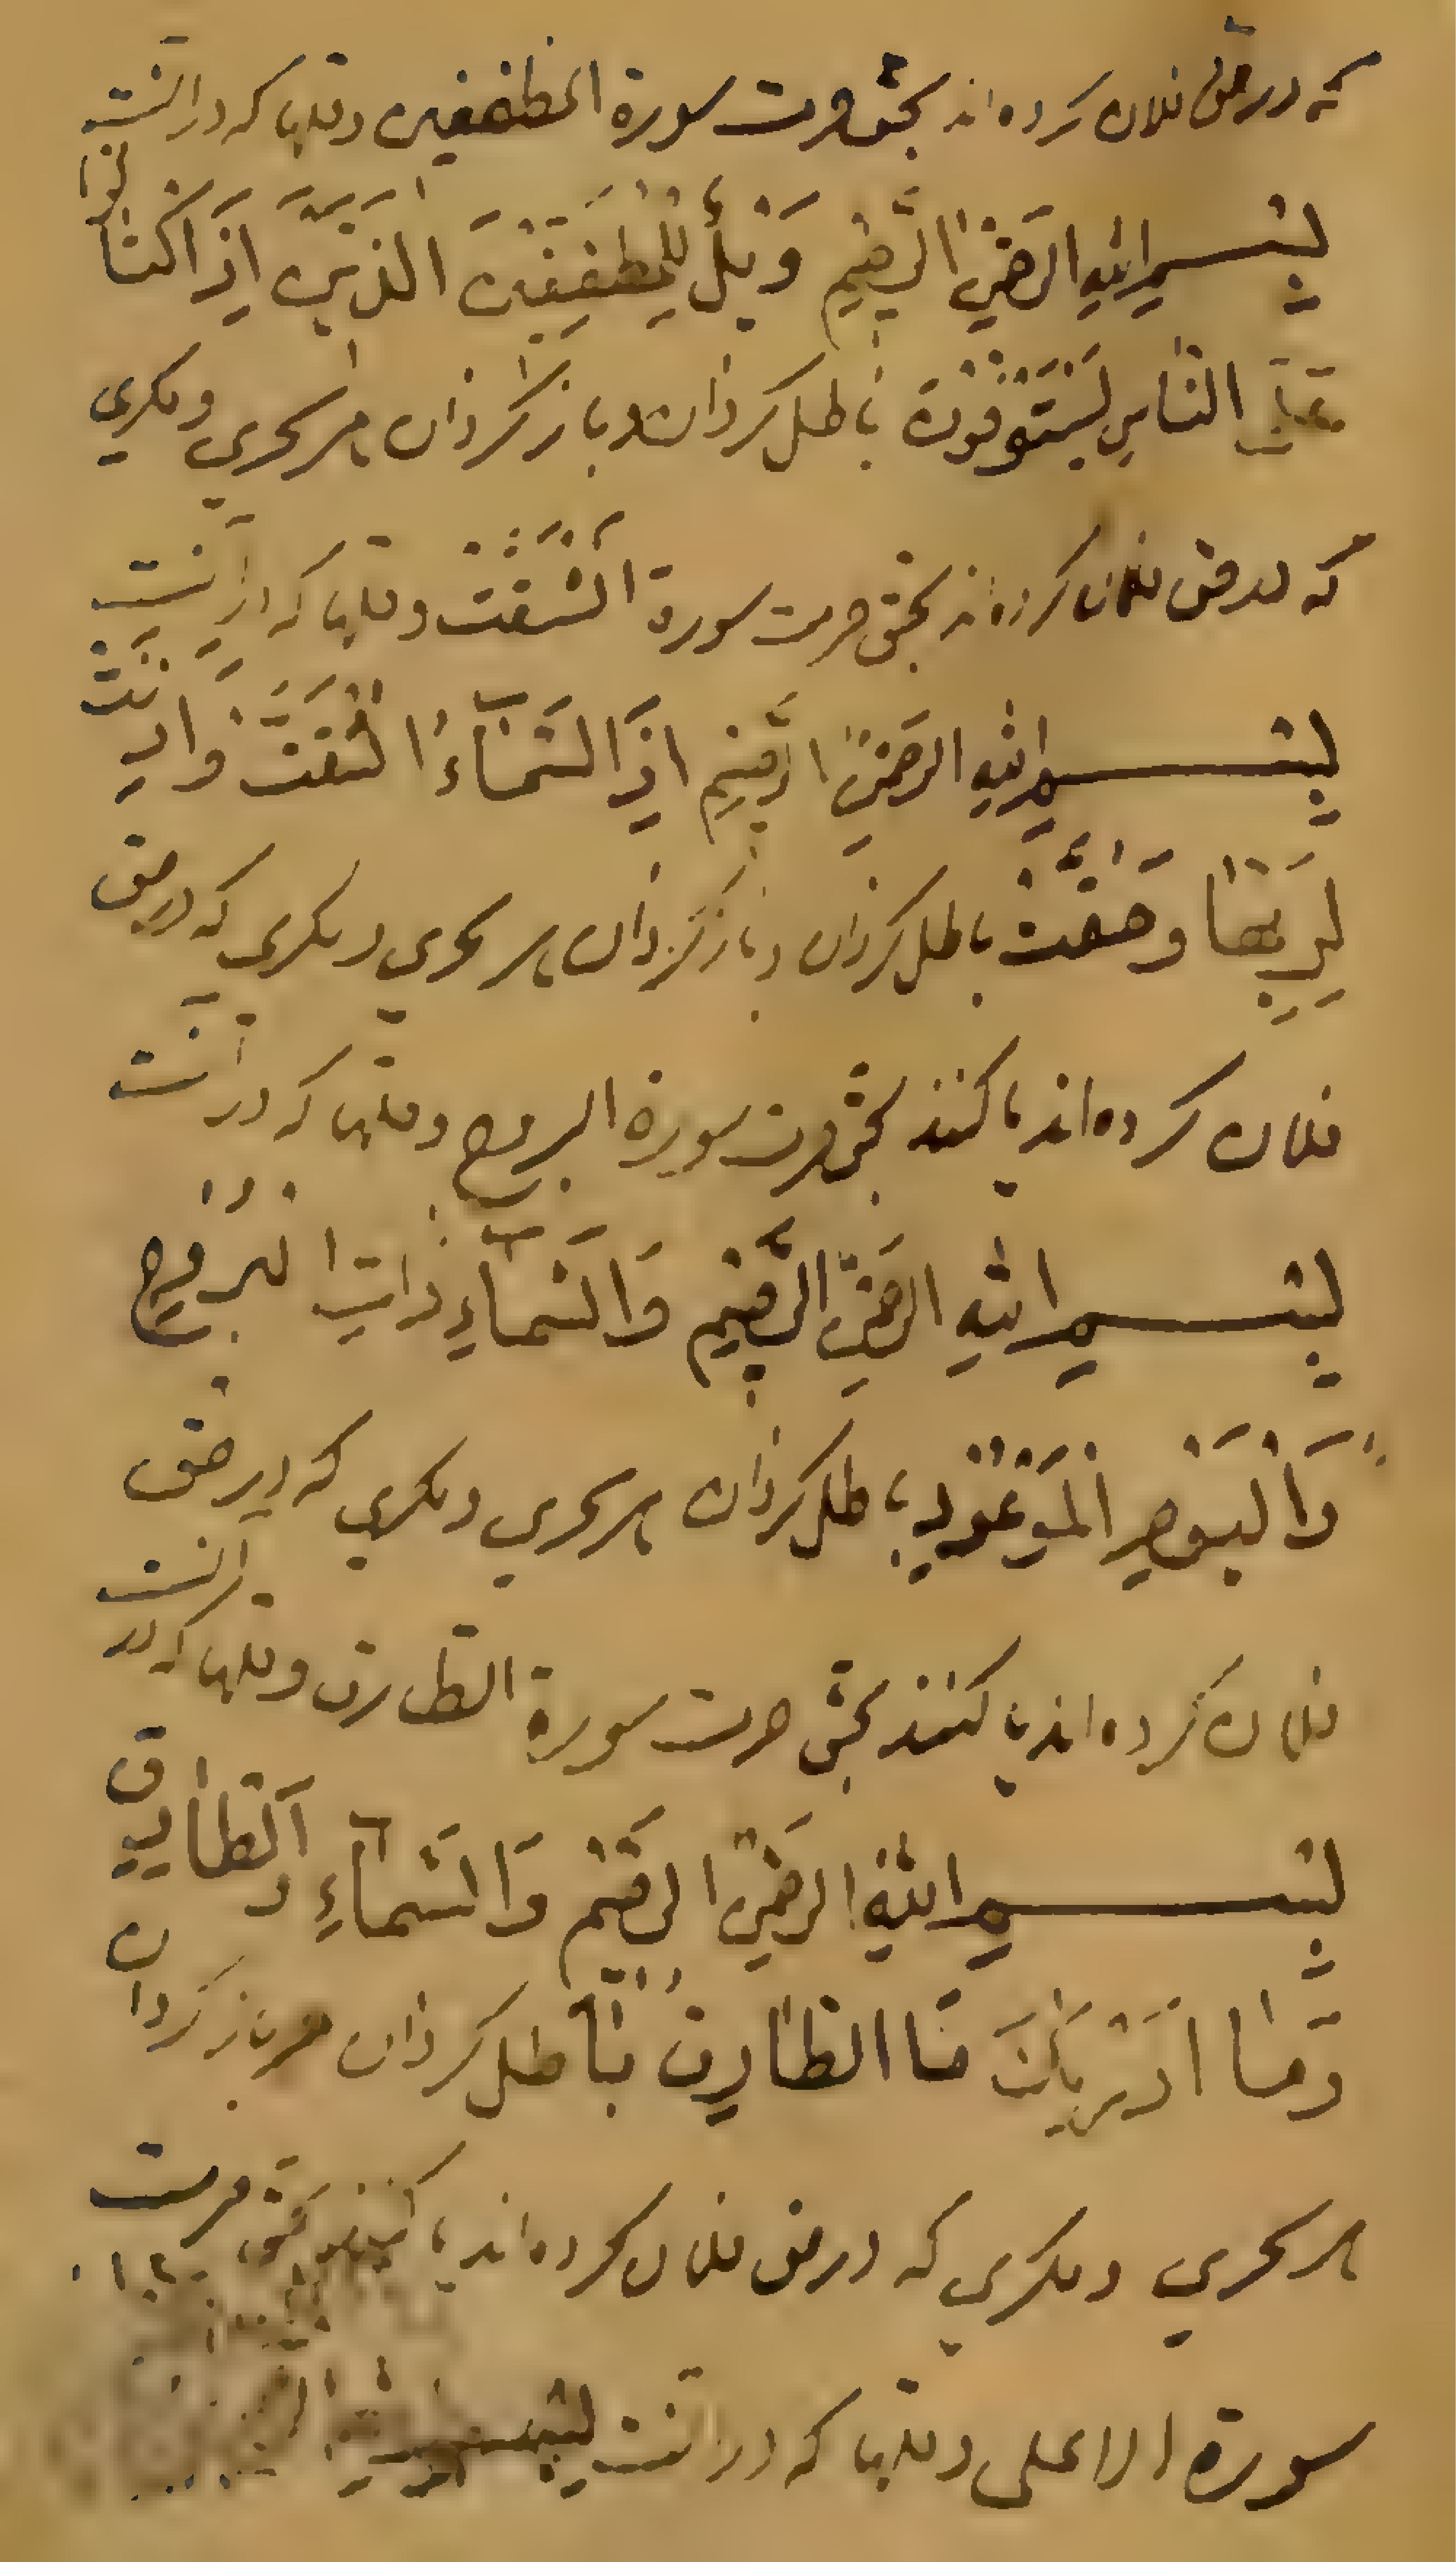 که در حق فلان کرده‌اند بحق حرمت سورة المطففین وقلبها که در آنست
بِسْمِ اللهِ الرَّحْمٰنِ الرَّحِيمِ وَيْلٌ لِلْمُطَفِّفِينَ الَّذِينَ اِذَا اكْتَالُوا
عَلَى النَّاسِ يَسْتَوْفُونَ باطل کردان و باز کردان هر سحری و مکری
که در حق فلان کرده‌اند بحق حرمت سورة انْشَقَّتْ وقلبها که در آنست
بِسْمِ اللهِ الرَّحْمٰنِ الرَّحِيمِ اِذَا السَّمَآءُ انْشَقَّتْ وَاَذِنَتْ
لِرَبِّهَا وَحُقَّتْ باطل کردان و باز کردان هر سحری و مکری که در حق
فلان کرده‌اند یا کنند بحق حرمت سورة البروج وقلبها که در آنست
بِسْمِ اللهِ الرَّحْمٰنِ الرَّحِيمِ وَالسَّمَآءِ ذَاتِ الْبُرُوجِ
وَالْيَوْمِ الْمَوْعُودِ باطل کردان هر سحری و مکری که در حق
فلان کرده‌اند یا کنند بحق حرمت سورة الطارق وقلبها که در آنست
بِسْمِ اللهِ الرَّحْمٰنِ الرَّحِيمِ وَالسَّمَآءِ وَالطَّارِقِ
وَمَا اَدْرٰيكَ مَا الطَّارِقُ باطل کردان و باز کردان
هر سحری و مکری که در حق فلان کرده‌اند یا کنند بحق حرمت
سورة الاعلی وقلبها که در آنست بسم